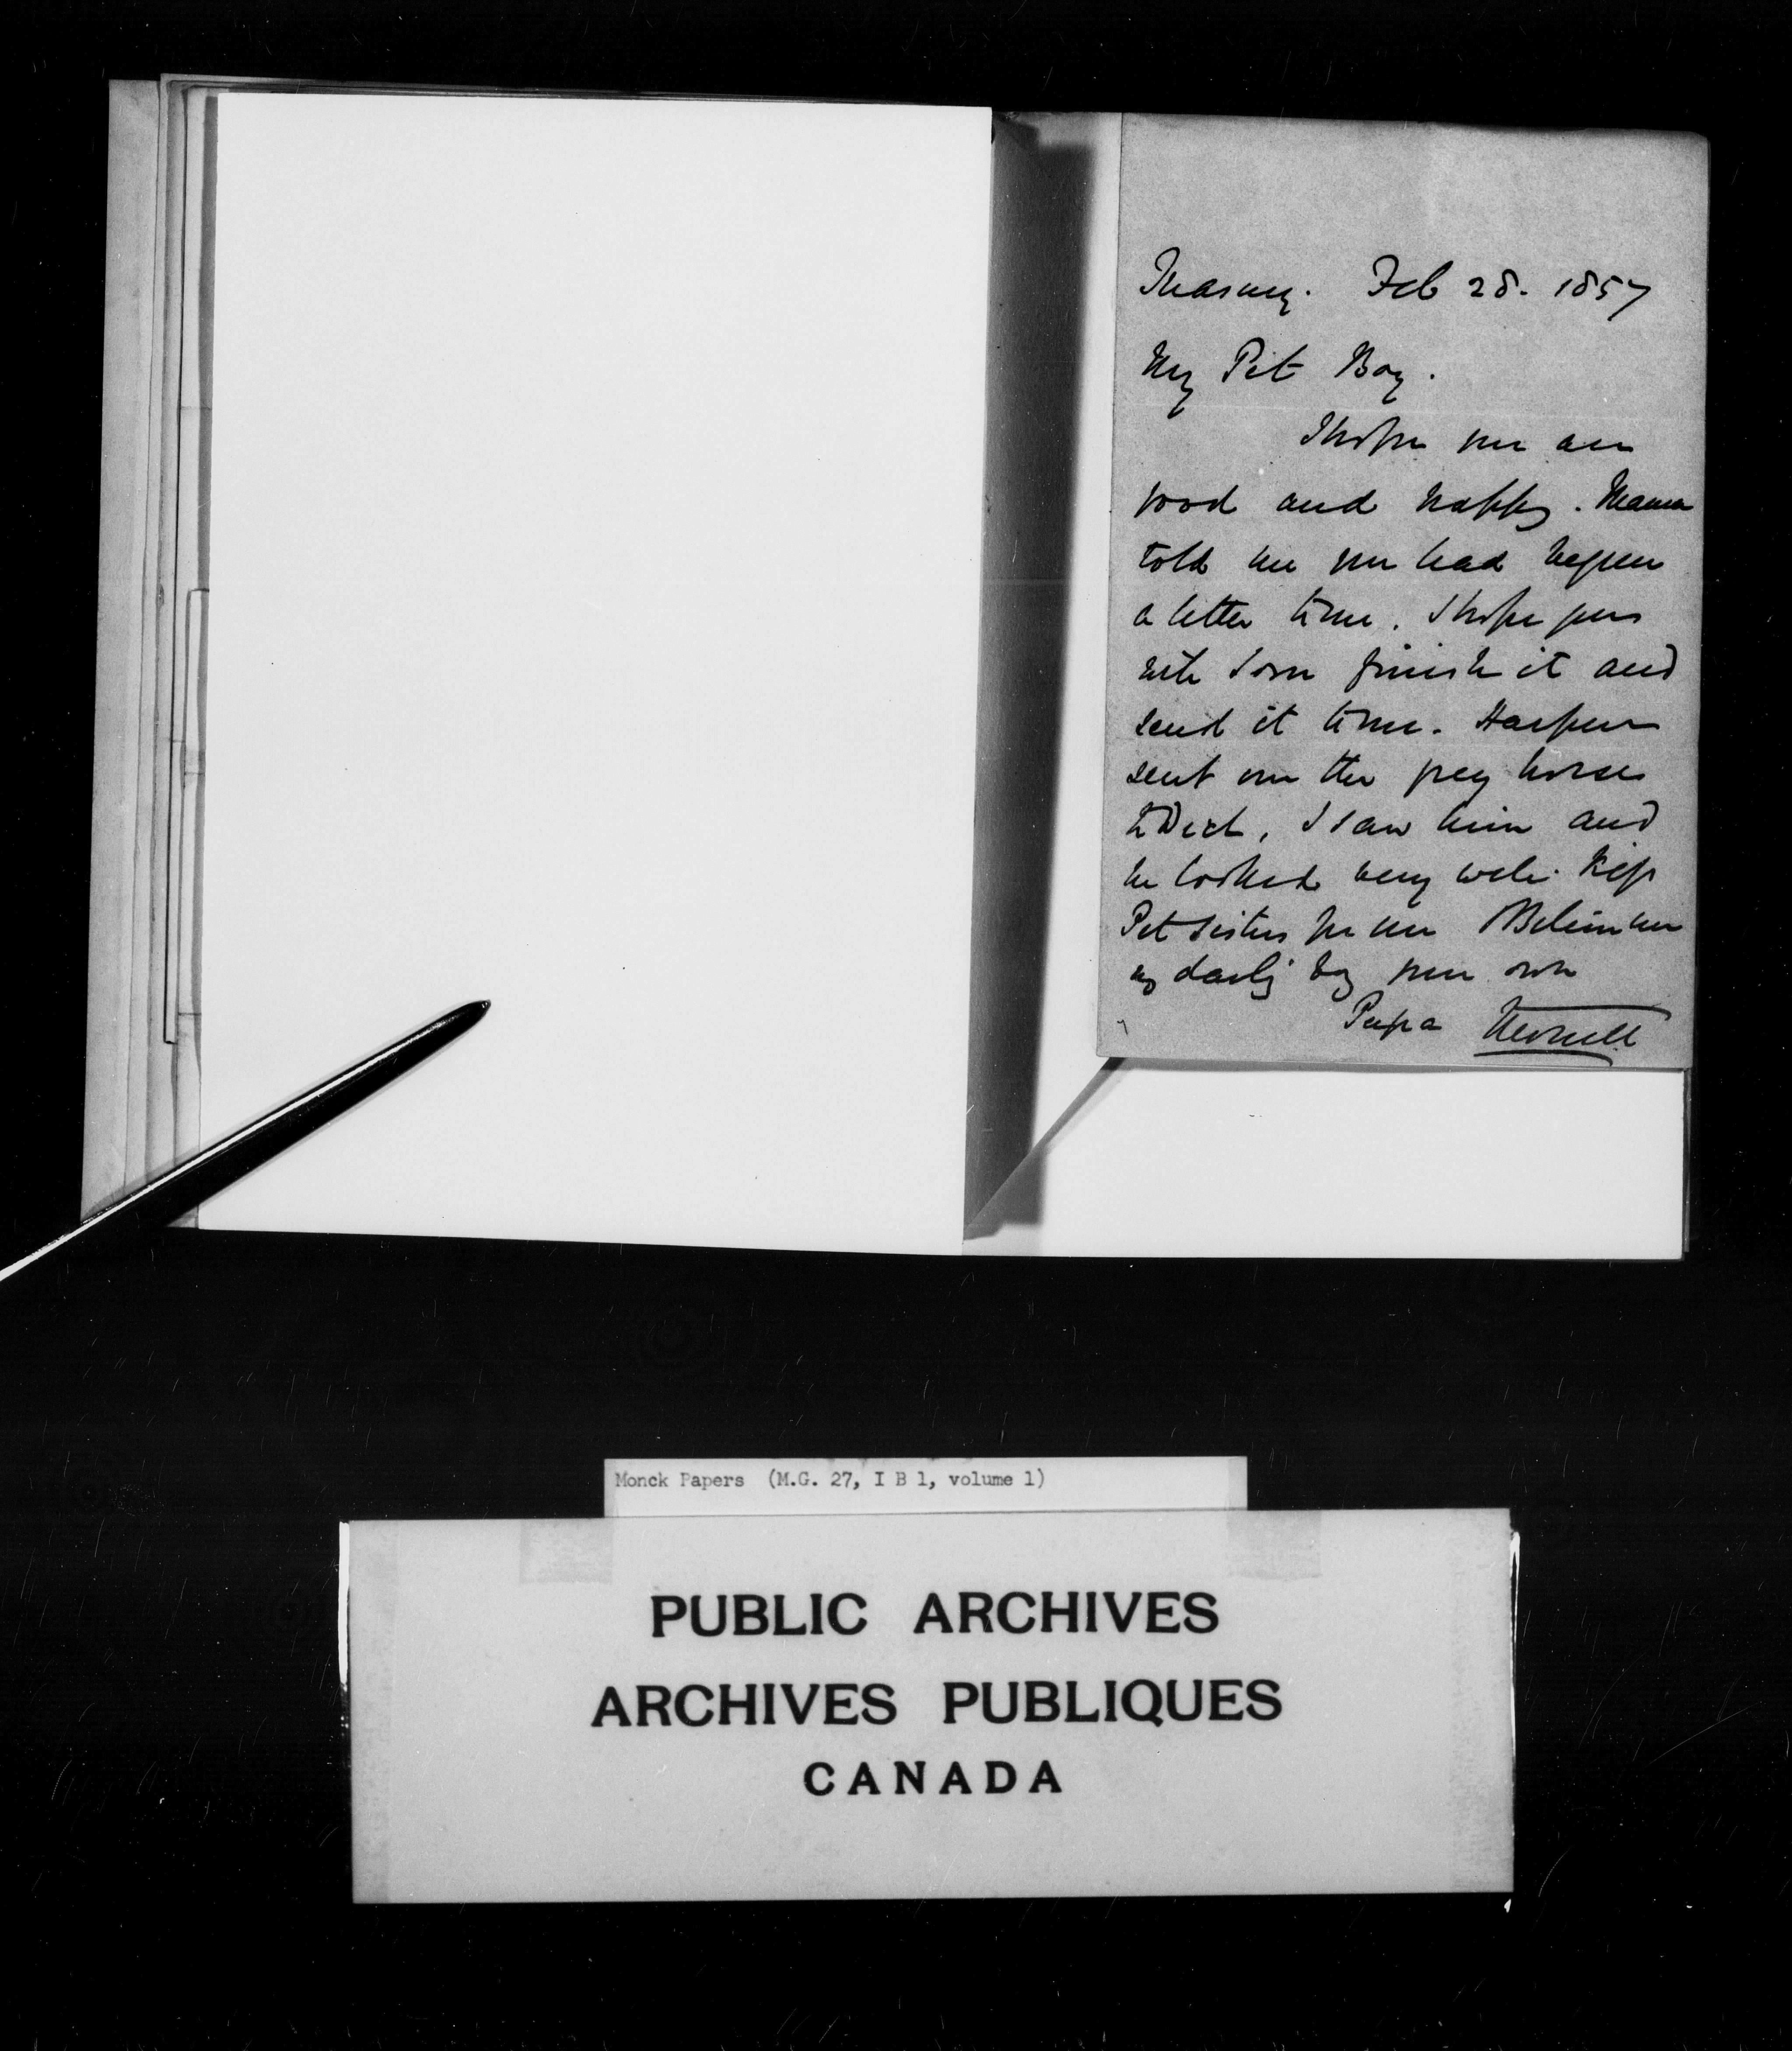 Treasury. Feb 28. 1857
My Pet Boy.
I hope you are
good and happy. Mama
told me you had begun
a letter to me. I hope you
will soon finish it and
send it to me. Harper
sent on the grey horse
to I saw him and
he looked very well. Kiss
Pet Sisters for me Believe me
my darling boy your own
Papa Monck
Monck Papers (M.G. 27, I B 1, volume 1)
PUBLIC ARCHIVES
ARCHIVES PUBLIQUES
CANADA